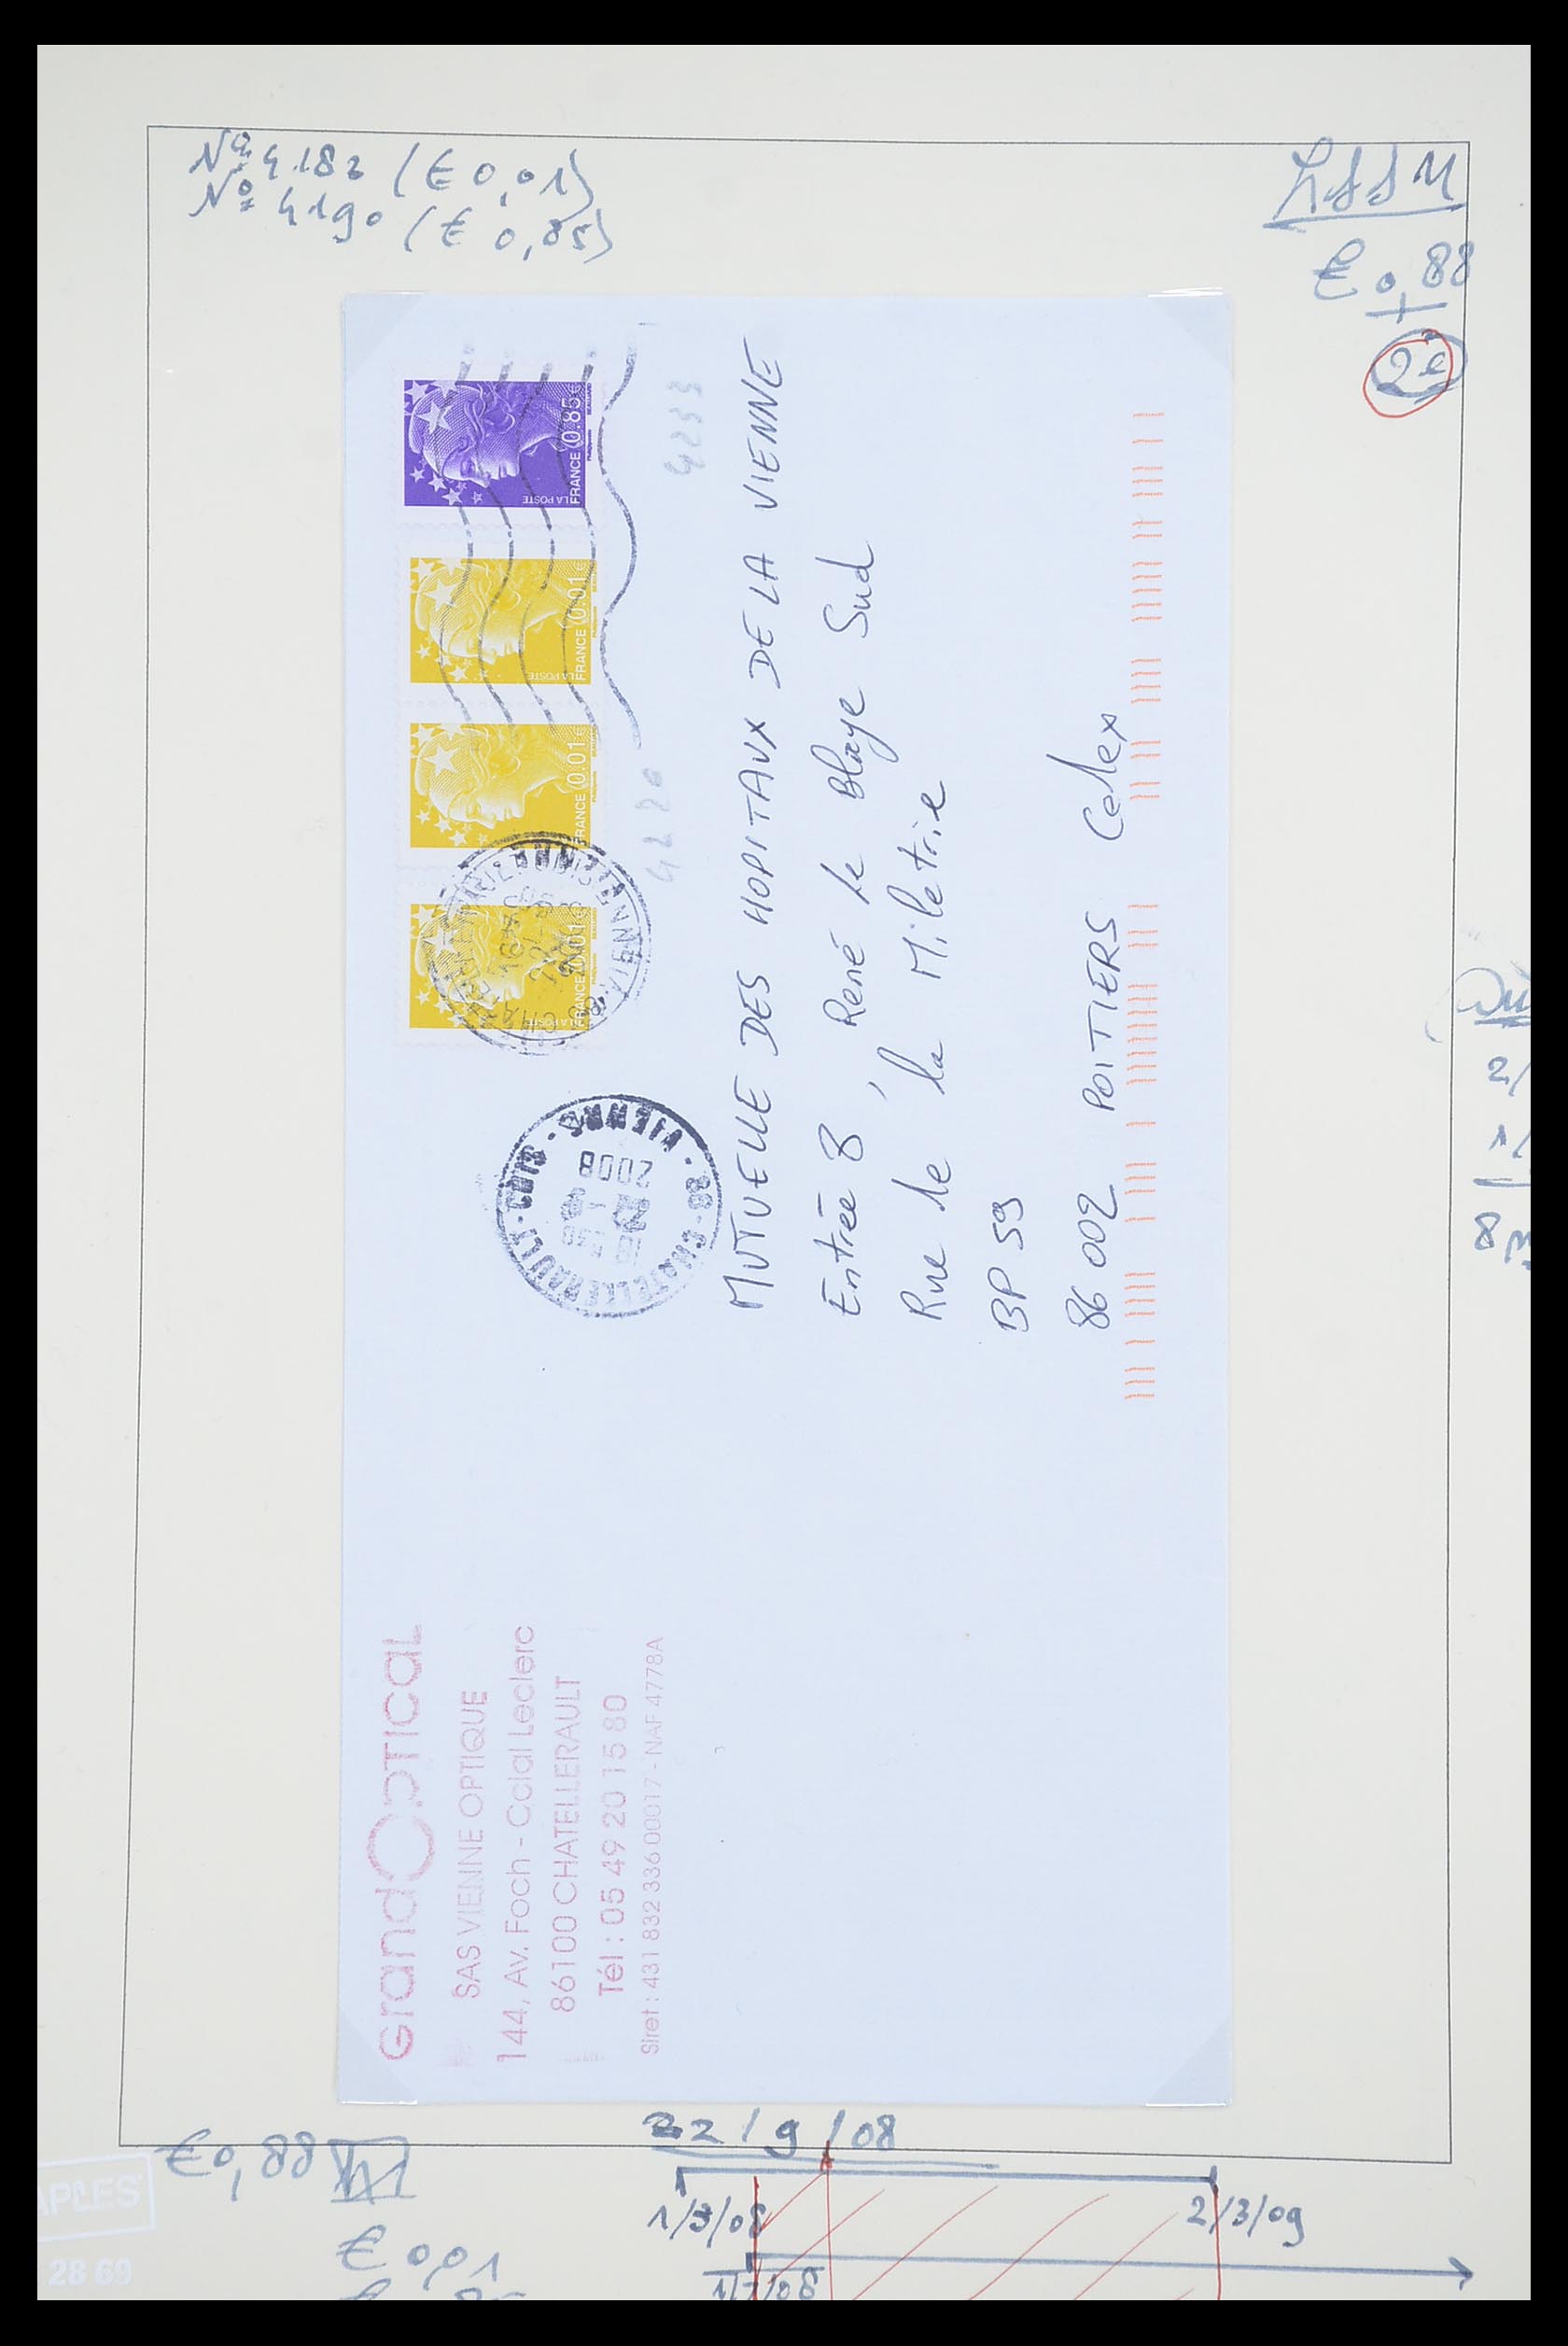 Nº 4182 (€ 0,01)
Nº 4190 (€ 0,85)
€ 0,88
2è
FRANCE 0.85€
LA POSTE
FRANCE 0.01€
LA POSTE
FRANCE 0.01€
FRANCE 0.01€
LA POSTE
4233
4230
86 - CHATELLERAULT - CDIS - VIENNE
2008
MUTUELLE DES HOPITAUX DE LA VIENNE
Entrée 8, René le Blaye Sud
Rue de la Miletrie
BP 59
86 002 POITIERS Cedex
GrandOpTICaL
SAS VIENNE OPTIQUE
144, Av. Foch - Ccial Leclerc
86100 CHATELLERAULT
Tél : 05 49 20 15 80
Siret : 431 832 336 00017 - NAF 4778A
2/
1/
8
22/9/08
€0,88
1/3/08
2/3/09
€ 0,01
1/7/08
APLES
28 69